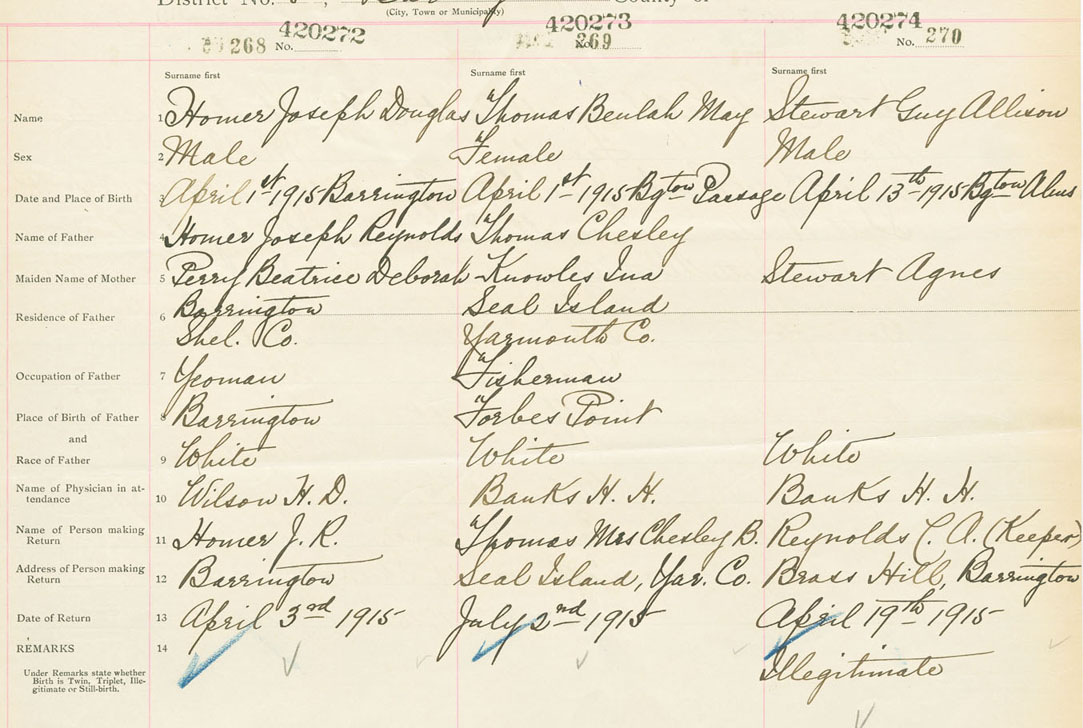 District No. County of
(City, Town or Municipality)
420272 420273 420274
268 No. No. 269 No. 270
Surname first Surname first Surname first
Name 1 Homer Joseph Douglas Thomas Beulah May Stewart Guy Allison
Sex 2 Male Female Male
Date and Place of Birth 3 April 1st 1915 Barrington April 1st 1915 Bgton Passage April 13th 1915 Bgton Alms
Name of Father 4 Homer Joseph Reynolds Thomas Chesley
Maiden Name of Mother 5 Perry Beatrice Deborah Knowles Ina Stewart Agnes
Residence of Father 6 Barrington Seal Island
Shel. Co. Yarmouth Co.
Occupation of Father 7 Yeoman Fisherman
Place of Birth of Father 8 Barrington Forbes Point
and
Race of Father 9 White White White
Name of Physician in at-
tendance 10 Wilson H. D. Banks H. H. Banks H. H.
Name of Person making
Return 11 Homer J. R. Thomas Mrs Chesley B. Reynolds C. A. (Keeper)
Address of Person making
Return 12 Barrington Seal Island, Yar. Co. Brass Hill, Barrington
Date of Return 13 April 3rd 1915 July 2nd 1915 April 19th 1915
REMARKS 14 Illegitimate
Under Remarks state whether
Birth is Twin, Triplet, Ille-
gitimate or Still-birth.